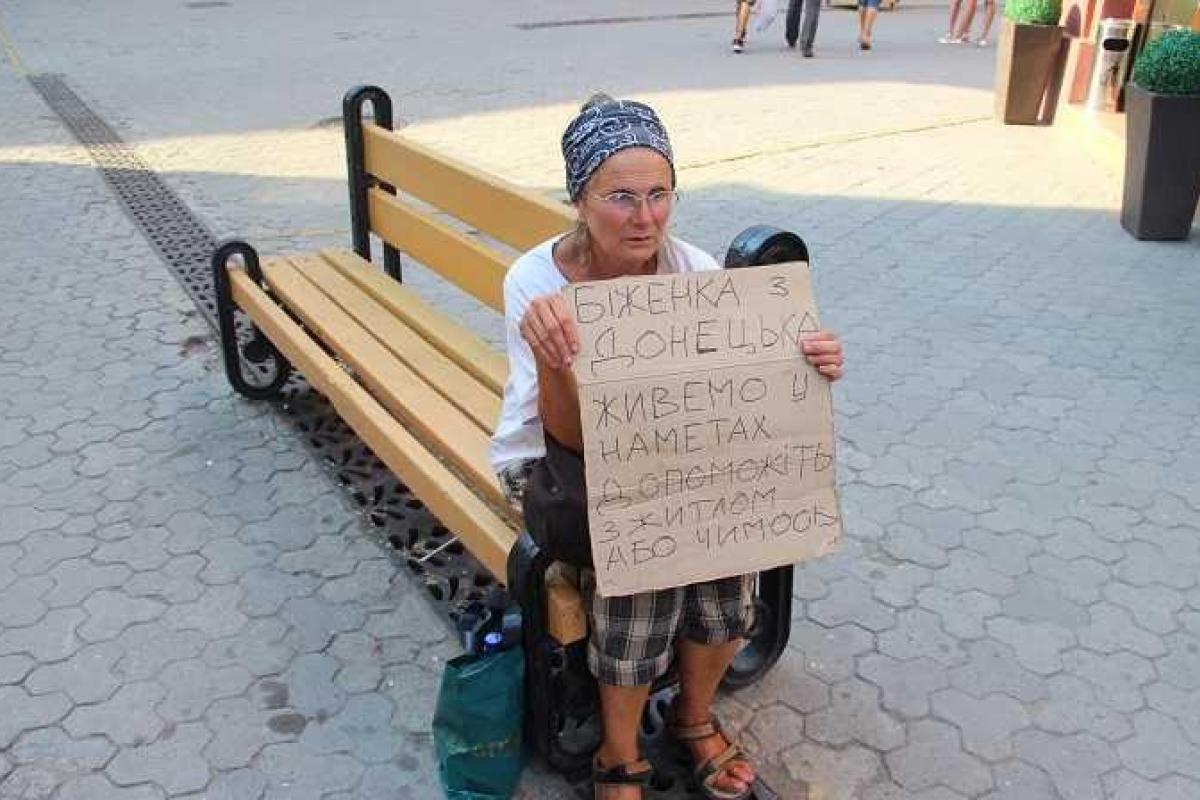 БІЖЕНКА З
ДОНЕЦЬКА
ЖИВЕМО У
НАМЕТАХ
ДОПОМОЖІТЬ
З ЖИТЛОМ
АБО ЧИМОСЬ